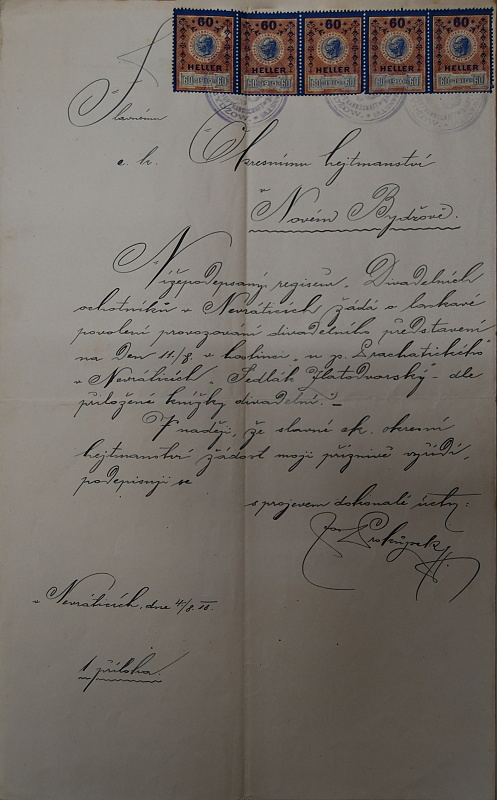 60 60 60 60 60
HELLER HELLER HELLER HELLER HELLER
60 1910 60 60 1910 60 60 1910 60 60 1910 60 60 1910 60
Slavnému
c. k. Okresnímu hejtmanství
v
Novém Bydžově.
Nížepodepsaný regiseur „Divadelních
ochotníků v Nevráticích žádá o laskavé
povolení provozování divadelního představení
na den 11./8. v hostinci „u p. Prachatického"
v Nevráticích „Sedlák Zlatodvorský" dle
přiložené knížky divadelní."
V naději, že slavné ck. okresní
hejtmanství žádost moji příznivě vyřídí,
podepisuji se
s projevem dokonalé úcty:
Jos. Prokůpek
v Nevráticích, dne 4/8. 10.
1 příloha.